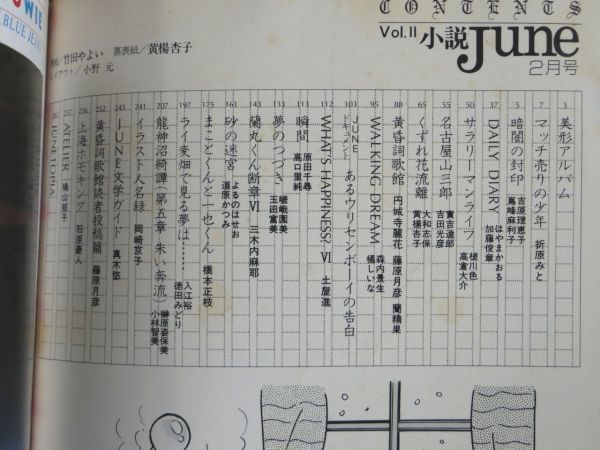 CONTENTS
Vol.II 小説June
2月号
表紙/竹田やよい 裏表紙/黄楊杏子
レイアウト/小野 元
BLUE JEAN
3 美形アルバム
7 マッチ売りの少年 折原みと
5 暗闇の封印 吉原理恵子 嵩峰麻利子
37 DAILY DIARY はやまかおる 加藤俊章
50 サラリーマンライフ 槎川色 高倉大介
55 名古屋山三郎 實吉達郎 吉田光彦
65 くずれ花流離 大和志保 黄楊杏子
88 黄昏詞歌館 円城寺麗花 藤原月彦 蘭精果
95 WALKING DREAM 森内景生 橘しいな
103 JUNEドキュメント あるウリセンボーイの告白
112 WHAT'S HAPPINESS? VI 土屋進
113 瞬間 原田千尋 高口里純
133 夢のつづき 嵯峨園美 玉田富美
143 蘭丸くん断章VI 三木内麻耶
161 砂の迷宮 よるのはせお 道原かつみ
175 まことくんと一也くん 橋本正枝
197 ライ麦畑で見る夢は…… 入江裕 徳田みどり
207 龍神沼綺譚(第五章 朱い奔流) 榊原姿保美 小林智美
241 イラスト人名録 岡崎京子
245 JUNE文学ガイド 真木悠
252 黄昏詞歌館読者投稿篇 藤原月彦
256 上海ホモキング 石原豪人
257 ATELIER 鳩山郁子
261 JUNETOPIA